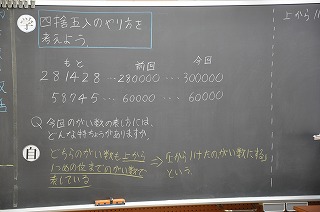 学 四捨五入のやり方を
考えよう。
もと 前回 今回
281428…280000…300000
58745…60000…60000
Q 今回のがい数の表し方には、
どんな特ちょうがありますか。
自 どちらのがい数も上から
1つめの位までのがい数で
表している
⇒「上から1けたのがい数にする」
という。
上から1け